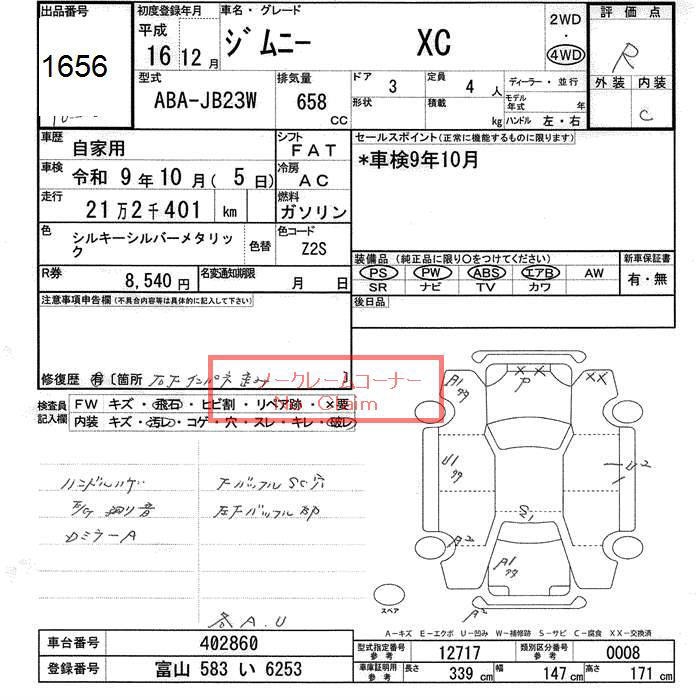 出品番号
1656
初度登録年月
平成
16 年 12 月
車名・グレード
ジムニー XC
2WD
・
4WD
評価点
R
外装 内装
C
型式
ABA-JB23W
排気量
658
CC
ドア
3
定員
4 人
形状
積載
kg
ディーラー・並行
モデル年式 年
ハンドル 左・右
車歴
自家用
シフト
FAT
車検
令和 9 年 10 月 ( 5 日)
冷房
AC
走行
21 万 2 千 401 km
燃料
ガソリン
色
シルキーシルバーメタリック
色替
色コード
Z2S
R券
8,540 円
名変通知期限
月 日
セールスポイント(正常に機能するものに限ります)
*車検9年10月
装備品(純正品に限り○をつけてください)
PS PW ABS エアB AW
SR ナビ TV カワ
新車保証書
有・無
後日品
注意事項申告欄(不具合内容等は具体的に記入して下さい)
修復歴 有〔箇所 右F インパネ 歪み 〕
ノークレームコーナー
No Claim
検査員
記入欄
FW キズ・飛石・ヒビ割・リペア跡・×要
内装 キズ・汚レ・コゲ・穴・スレ・キレ・破レ
ハンドルハゲ
DミラーA
各A.U
A1
99
XX
P
XX
U1
99
U2
S1
A2
A2
A1
99
A2
スペア
A-キズ E-エクボ U-凹み W-補修跡 S-サビ C-腐食 XX-交換済
車台番号
402860
登録番号
富山 583 い 6253
型式指定番号
参考
12717
類別区分番号
参考
0008
車庫証明用
参考
長さ
339 cm
幅
147 cm
高さ
171 cm